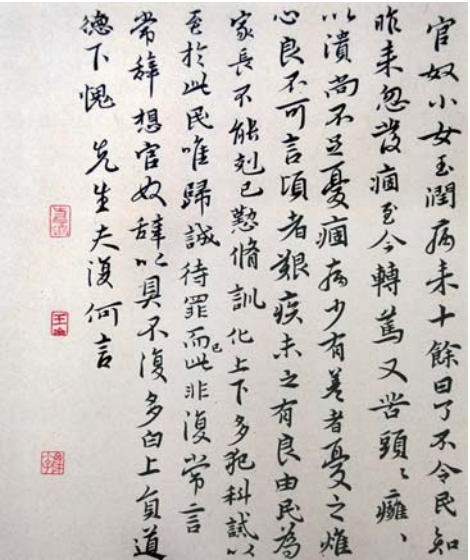 官奴小女玉潤病来十餘日了不令民知
昨来忽發痼至今轉篤又苦頭〻癰〻
以潰尚不足憂痼病少有差者憂之燋
心良不可言頃者艱疾未之有良由民為
家長不能剋己懃脩訓化上下多犯科誡以
至於此民唯歸誠待罪而已此非復常言
常辭想官奴辭以具不復多白上負道
德下愧 先生夫復何言